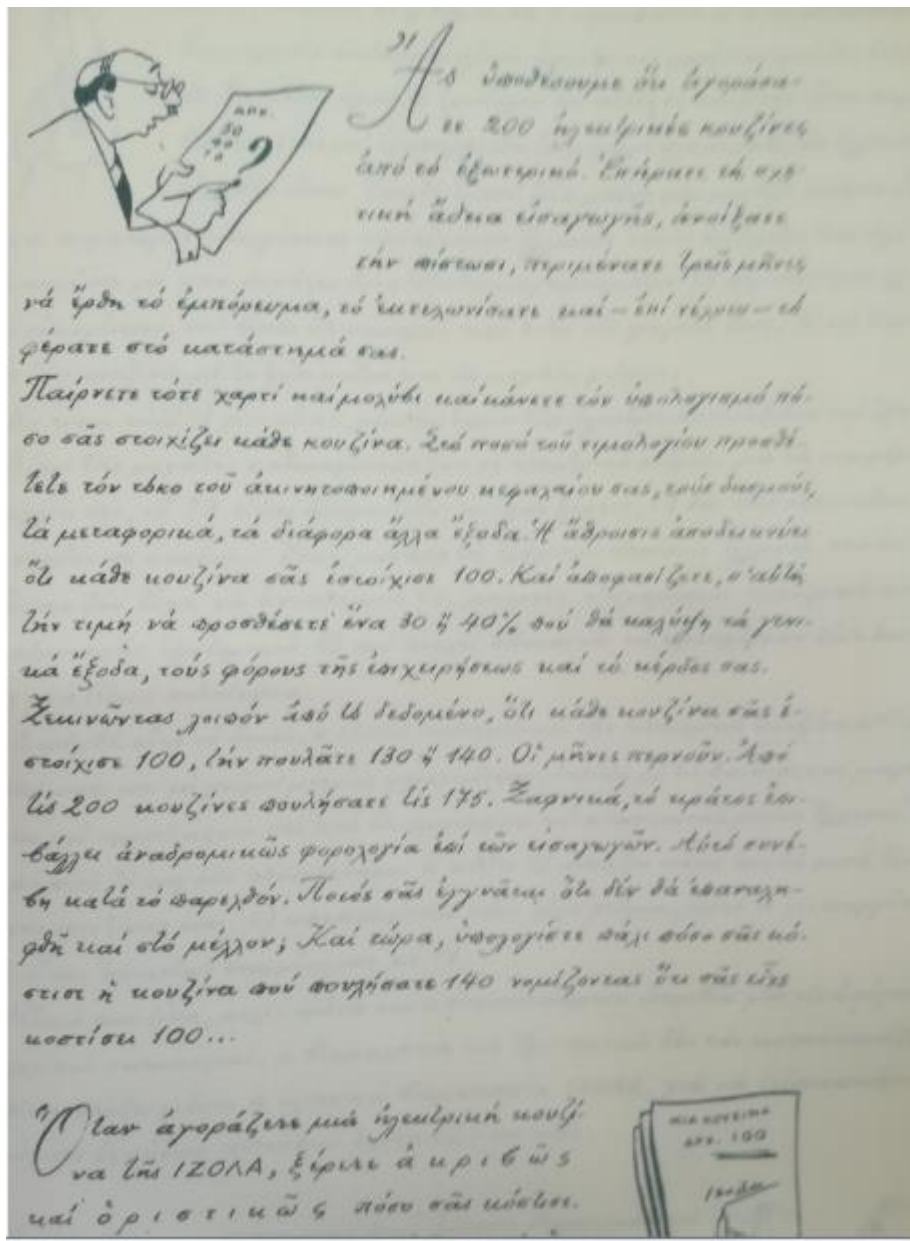 ΔΡΧ.
30
40
10
?
Ἄς ὑποθέσουμε ὅτι ἀγοράσα-
τε 200 ἠλεκτρικές κουζίνες
ἀπό τό ἐξωτερικό. Ἐπήρατε τή σχε-
τική ἄδεια εἰσαγωγῆς, ἀνοίξατε
τήν πίστωσι, περιμένατε τρεῖς μῆνες
νά ἔρθη τό ἐμπόρευμα, τό ἐκτελωνίσατε καί — ἐπί τέλους — τό
φέρατε στό κατάστημά σας.
Παίρνετε τότε χαρτί καί μολύβι καί κάνετε τόν ὑπολογισμό πό-
σο σᾶς στοιχίζει κάθε κουζίνα. Στό ποσό τοῦ τιμολογίου προσθέ-
τετε τόν τόκο τοῦ ἀκινητοποιημένου κεφαλαίου σας, τούς δασμούς,
τά μεταφορικά, τά διάφορα ἄλλα ἔξοδα. Ἡ ἄθροισις ἀποδεικνύει
ὅτι κάθε κουζίνα σᾶς ἐστοίχισε 100. Καί ἀποφασίζετε, σ' αὐτή
τήν τιμή νά προσθέσετε ἕνα 30 ἤ 40% πού θά καλύψη τά γενι-
κά ἔξοδα, τούς φόρους τῆς ἐπιχειρήσεως καί τό κέρδος σας.
Ξεκινῶντας λοιπόν ἀπό τό δεδομένο, ὅτι κάθε κουζίνα σᾶς ἐ-
στοίχισε 100, τήν πουλᾶτε 130 ἤ 140. Οἱ μῆνες περνοῦν. Ἀπό
τίς 200 κουζίνες πουλήσατε τίς 175. Ξαφνικά, τό κράτος ἐπι-
βάλλει ἀναδρομικῶς φορολογία ἐπί τῶν εἰσαγωγῶν. Αὐτό συνέ-
βη κατά τό παρελθόν. Ποιός σᾶς ἐγγυᾶται ὅτι δέν θά ἐπαναλη-
φθῆ καί στό μέλλον; Καί τώρα, ὑπολογίστε πάλι πόσο σᾶς κό-
στισε ἡ κουζίνα πού πουλήσατε 140 νομίζοντας ὅτι σᾶς εἶχε
κοστίσει 100...
Ὅταν ἀγοράζετε μιά ἠλεκτρική κουζί-
να τῆς ΙΖΟΛΑ, ξέρετε ἀκριβῶς
καί ὁριστικῶς πόσο σᾶς κόστισε.
ΜΙΑ ΚΟΥΖΙΝΑ
ΔΡΧ. 100